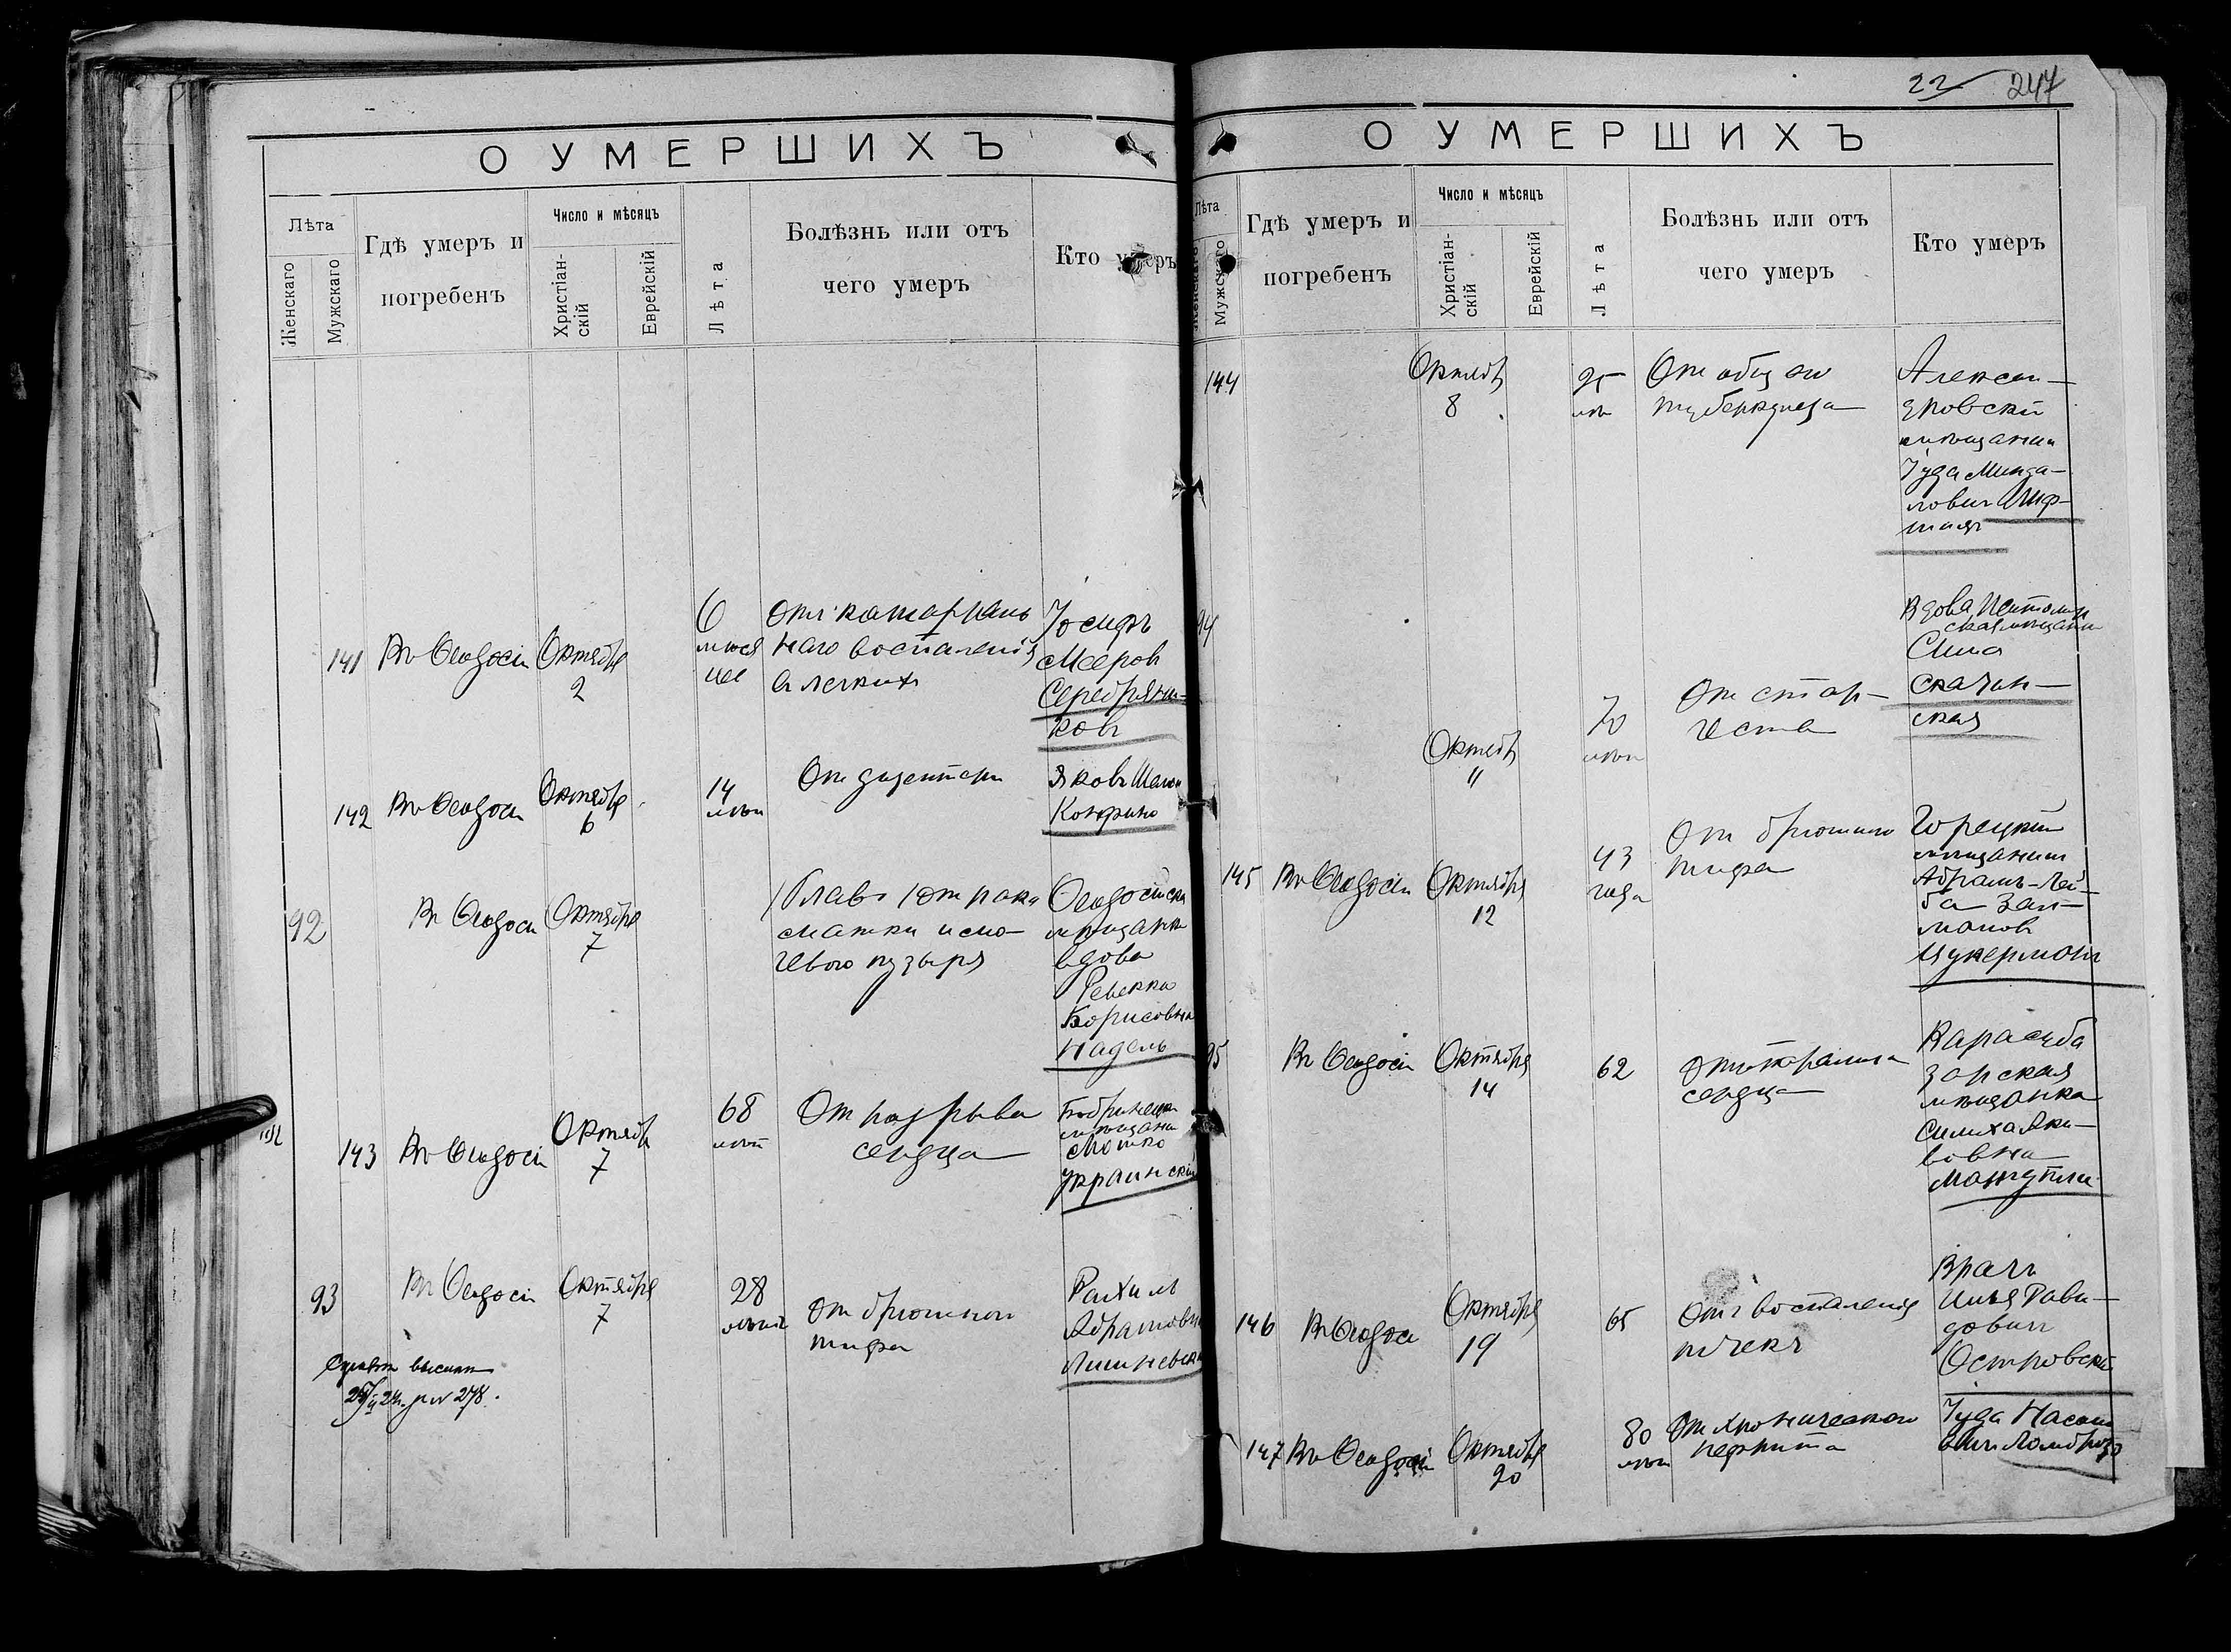 О УМЕРШИХЪ
Лѣта
Женскаго
Мужскаго
Гдѣ умеръ и
погребенъ
Число и мѣсяцъ
Христіан-
скій
Еврейскій
Лѣта
Болѣзнь или отъ
чего умеръ
Кто умеръ
141
Въ Ѳеодосіи
Октября
2
6
мѣся
це
Отъ катараль
наго воспаленія
легкихъ
Іосифъ
Мееров
Серебрянн-
ковъ
142
Въ Ѳеодосіи
Октября
6
14
лѣтъ
От дизентеріи
Яковъ
Конфино
92
Въ Ѳеодосіи
Октября
7
от рака
матки и мо-
чевого пузыря
Ѳеодосійская
мѣщанка
вдова
Ревекка
Борисовна
Надель
143
Въ Ѳеодосіи
Октября
7
68
лѣтъ
От разрыва
сердца
Бобринецкій
мѣщанин
Мошко
Украинскій
93
Въ Ѳеодосіи
Октября
7
28
лѣтъ
От брюшного
тифа
Рахиль
Абрамовна
278.
22
247
О УМЕРШИХЪ
Лѣта
Женскаго
Мужскаго
Гдѣ умеръ и
погребенъ
Число и мѣсяцъ
Христіан-
скій
Еврейскій
Лѣта
Болѣзнь или отъ
чего умеръ
Кто умеръ
144
Октября
8
25
лѣтъ
От общаго
туберкулеза
Алексан-
дровскій
мѣщанин
Іуда
94
Октября
11
70
лѣтъ
От стар-
чества
Вдова
мѣщанка
Сима
Скачин-
ская
145
Въ Ѳеодосіи
Октября
12
43
года
От брюшного
тифа
Горецкій
мѣщанин
Абрамъ-Лей-
ба Зал-
манов
Цукерманъ
95
Въ Ѳеодосіи
Октября
14
62
От паралича
сердца
Карасуба
зарская
мѣщанка
Симха Яко-
вовна
146
Въ Ѳеодосіи
Октября
19
65
Отъ воспаленія
почекъ
Врачъ
Илья Дави-
довичъ
Островскій
147
Въ Ѳеодосіи
Октября
20
80
лѣтъ
От хроническаго
нефрита
Іуда
Ломброзо